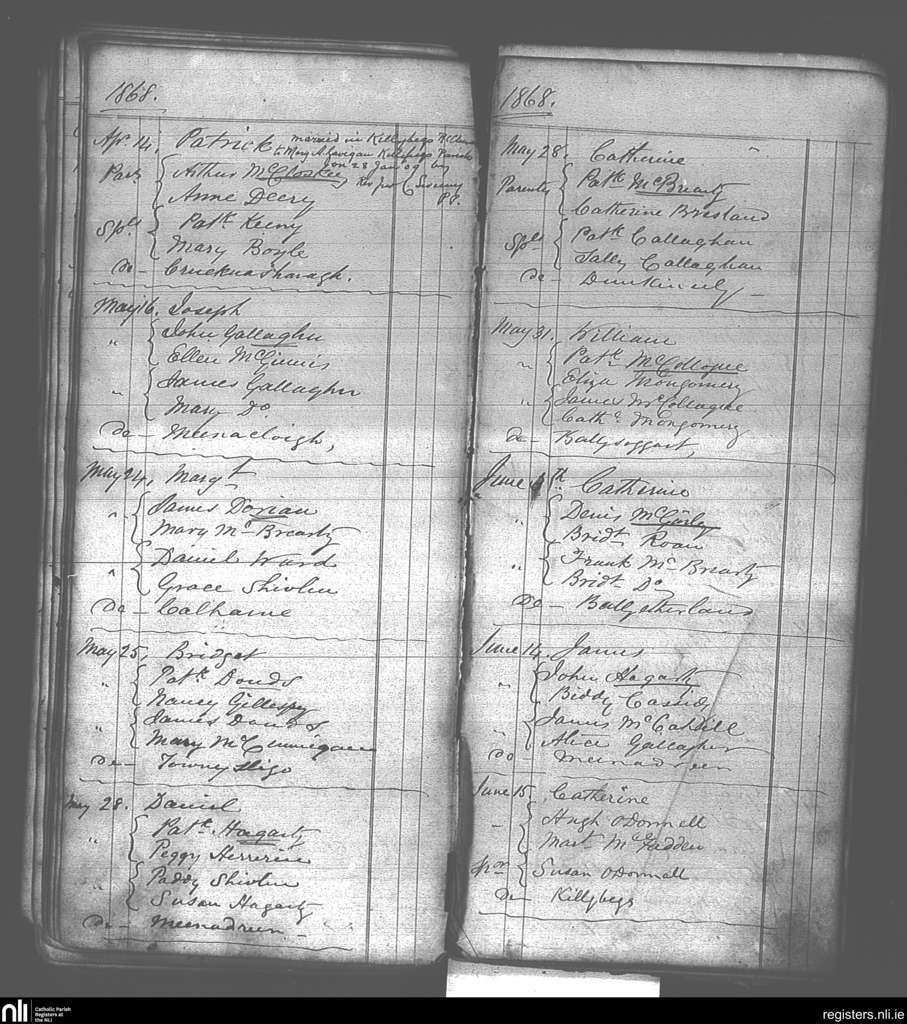 1868.
Apr. 14, Patrick married in Killybegs
to Mary A. Gavigan Killybegs Parish
on 28 Jan 09 by
Par. Arthur McCloskey Rev Jno Sweeney
P.P.
Anne Deery
Sps. Patk Keeny
Mary Boyle
do -
May 16. Joseph
" John Gallagher
Ellen McGinnis
" James Gallagher
Mary Do
do - Meenacloigh,
May 24, Margt
" James Dorian
Mary Mc Brearty
" Daniel Ward
Grace Shivlin
do - Calhame
May 25, Bridget
" Patk Douds
Nancy Gillespy
" James Douds
Mary McCunnigan
do - Towney Sligo
May 28. Daniel
" Patk Hagarty
Peggy Herrerin
" Paddy Shivlin
Susan Hagarty
do - Meenadreen -
1868.
May 28. Catherine "
Parents Patk McBrearty
Catherine Bresland
Sps. Patk Callaghan
Sally Callaghan
do - Dunkineely -
May 31, William
" Patk McCollogue
Eliza Montgomery
" James McCollague
Cathe Mongomery
do - Ballysoggart,
June th Catherine
" Denis McGinley
Bridt Roan
" Frank Mc Brearty
Bridt Do
do - Ballyederland
June 14, James
" John Hagarty
Biddy Cassidy
" James McCahill
Alice Gallagher
do - Meenadreen
June 15, Catherine
" Hugh ODonnell
Mart McFadden
Spon Susan ODonnell
do - Killybegs
nli Catholic Parish
Registers at
the NLI
registers.nli.ie